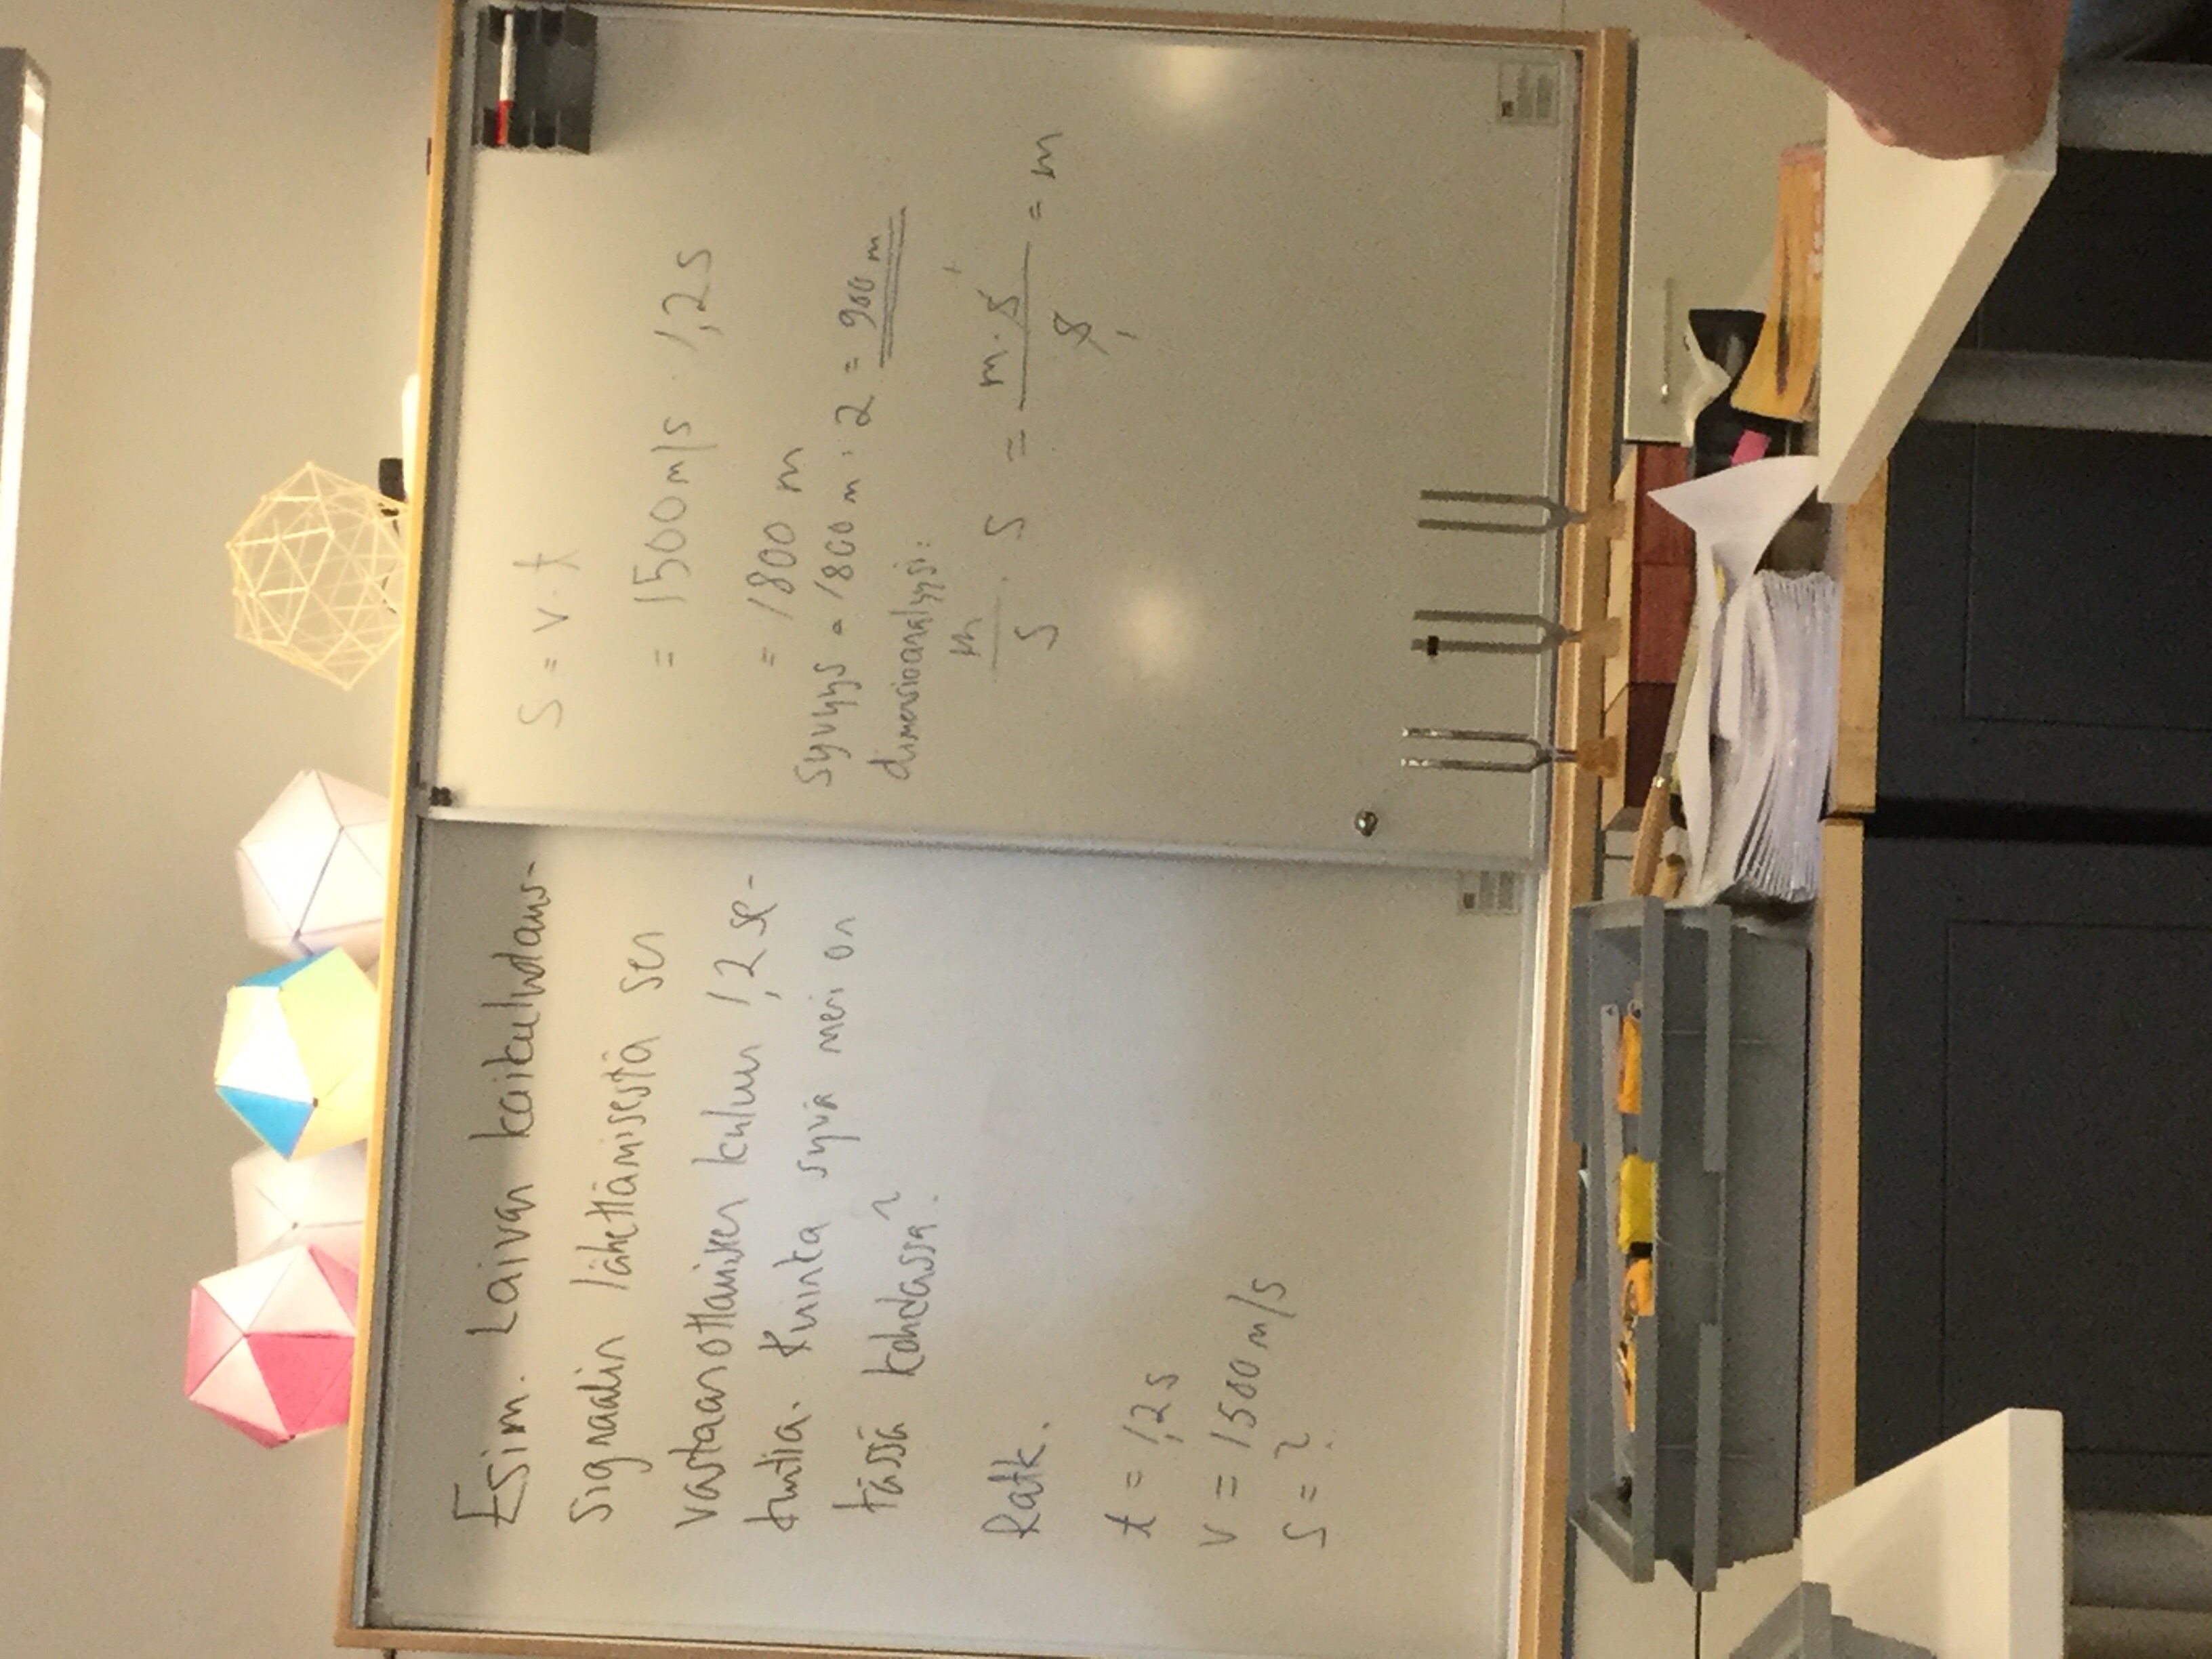 Esim. Laivan kaikuluotaus-
signaalin lähettämisestä sen
vastaanottamiseen kuluu 1,2 se-
kuntia. Kuinka syvä meri on
tässä kohdassa?
Ratk.
t = 1,2 s
v = 1500 m/s
s = ?
s = v · t
= 1500 m/s · 1,2 s
= 1800 m
syvyys = 1800 m : 2 = 900 m
dimensioanalyysi:
m/s · s = m · s/s = m